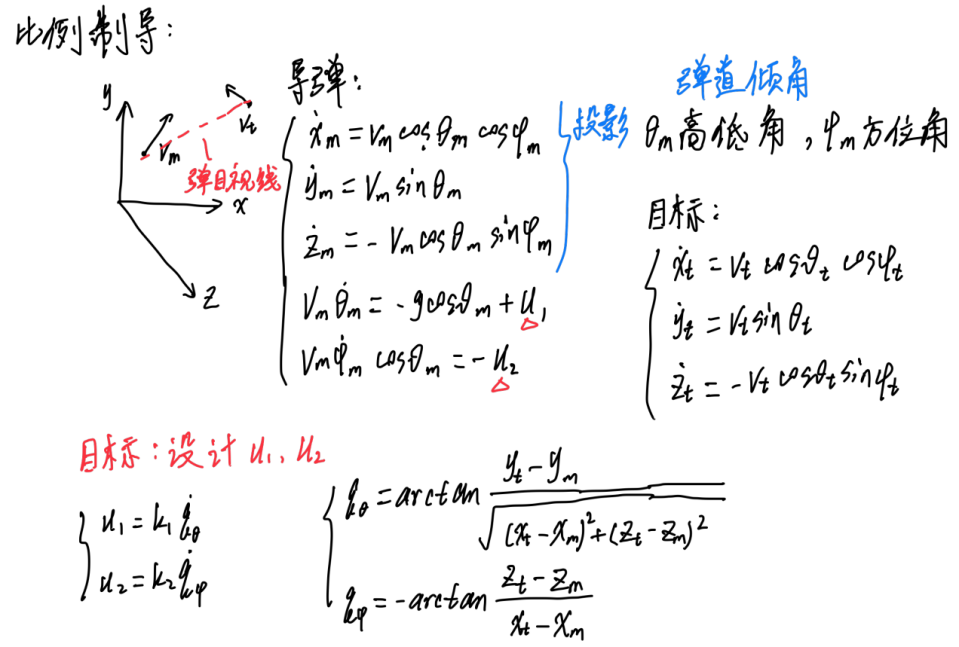 比例制导：
y
x
z
Vm
Vt
弹目视线
导弹：
ẋm = Vm cosθm cosφm
ẏm = Vm sinθm
żm = - Vm cosθm sinφm
Vm θ̇m = - g cosθm + u1
Vm φ̇m cosθm = - u2
投影
弹道倾角
θm 高低角，φm 方位角
目标：
ẋt = Vt cosθt cosφt
ẏt = Vt sinθt
żt = - Vt cosθt sinφt
目标：设计 u1、u2
u1 = k1 q̇θ
u2 = k2 q̇φ
qθ = arctan (yt - ym) / √((xt - xm)² + (zt - zm)²)
qφ = - arctan (zt - zm) / (xt - xm)